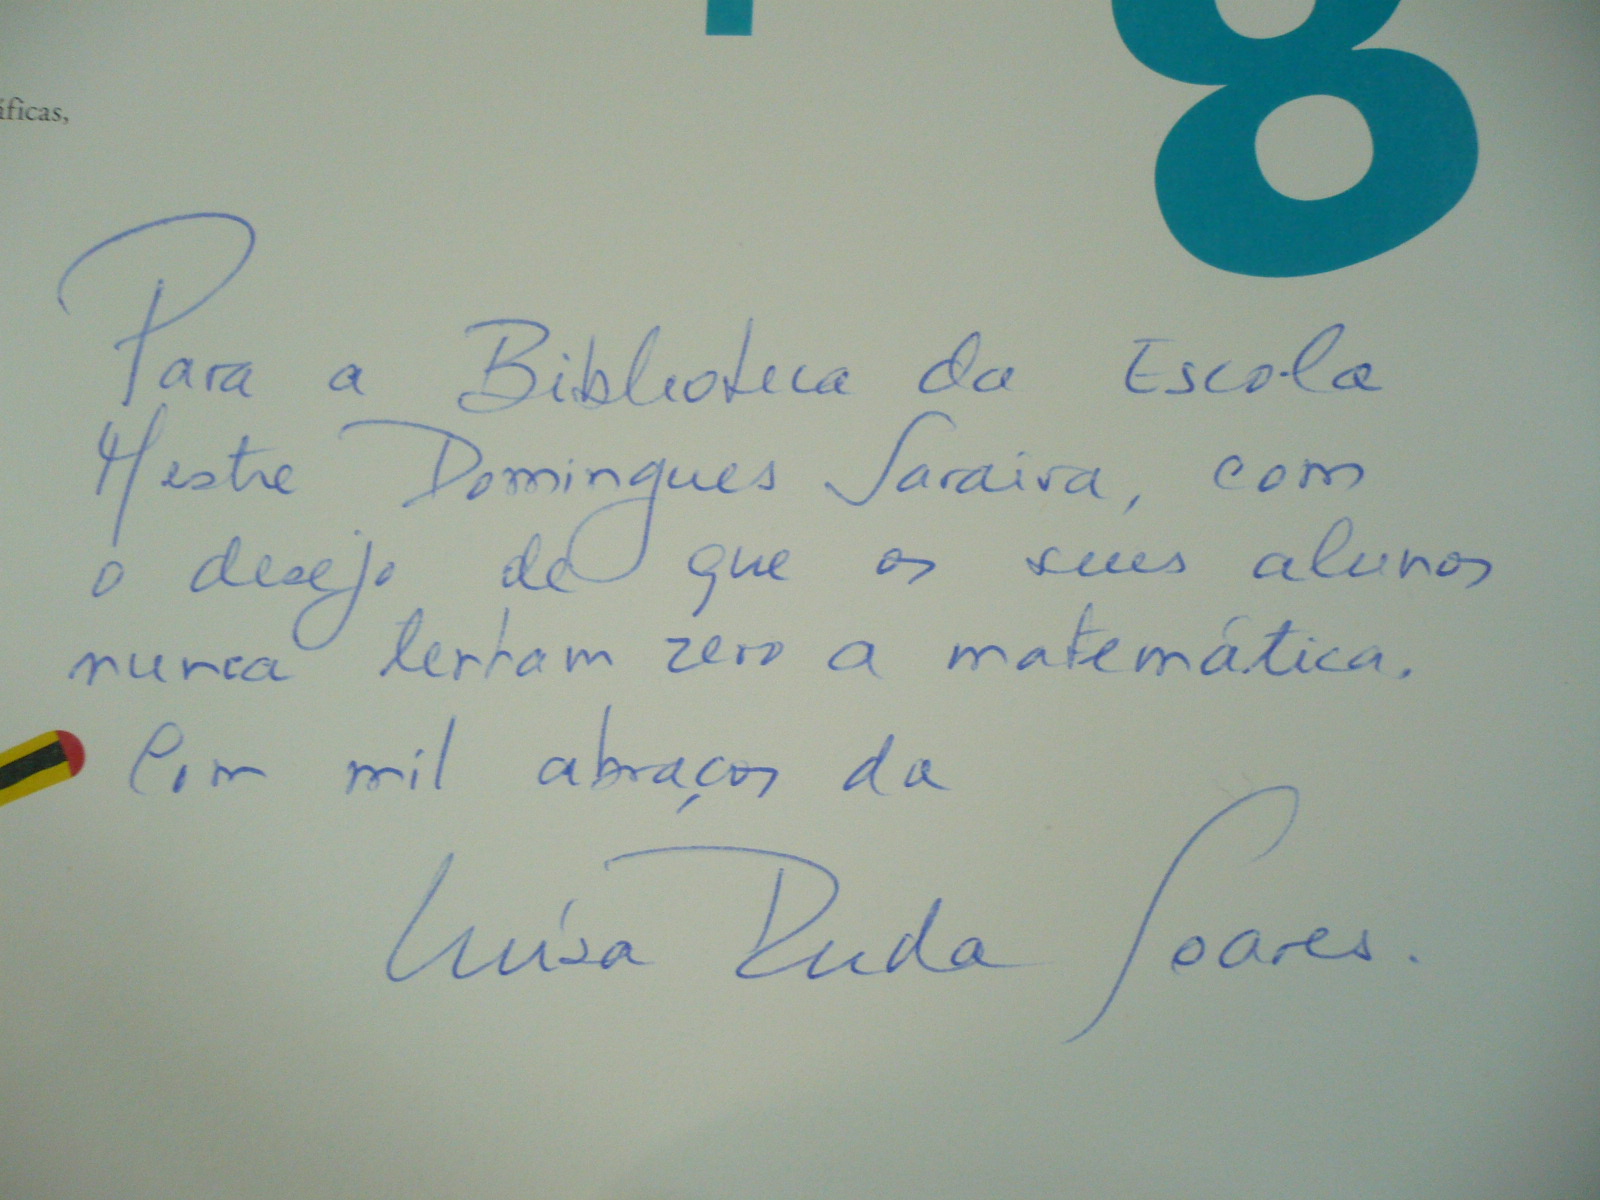 8
áficas,
Para a Biblioteca da Escola
Mestre Domingues Saraiva, com
o desejo de que os seus alunos
nunca tenham zero a matemática.
Com mil abraços da
Luísa Ducla Soares.